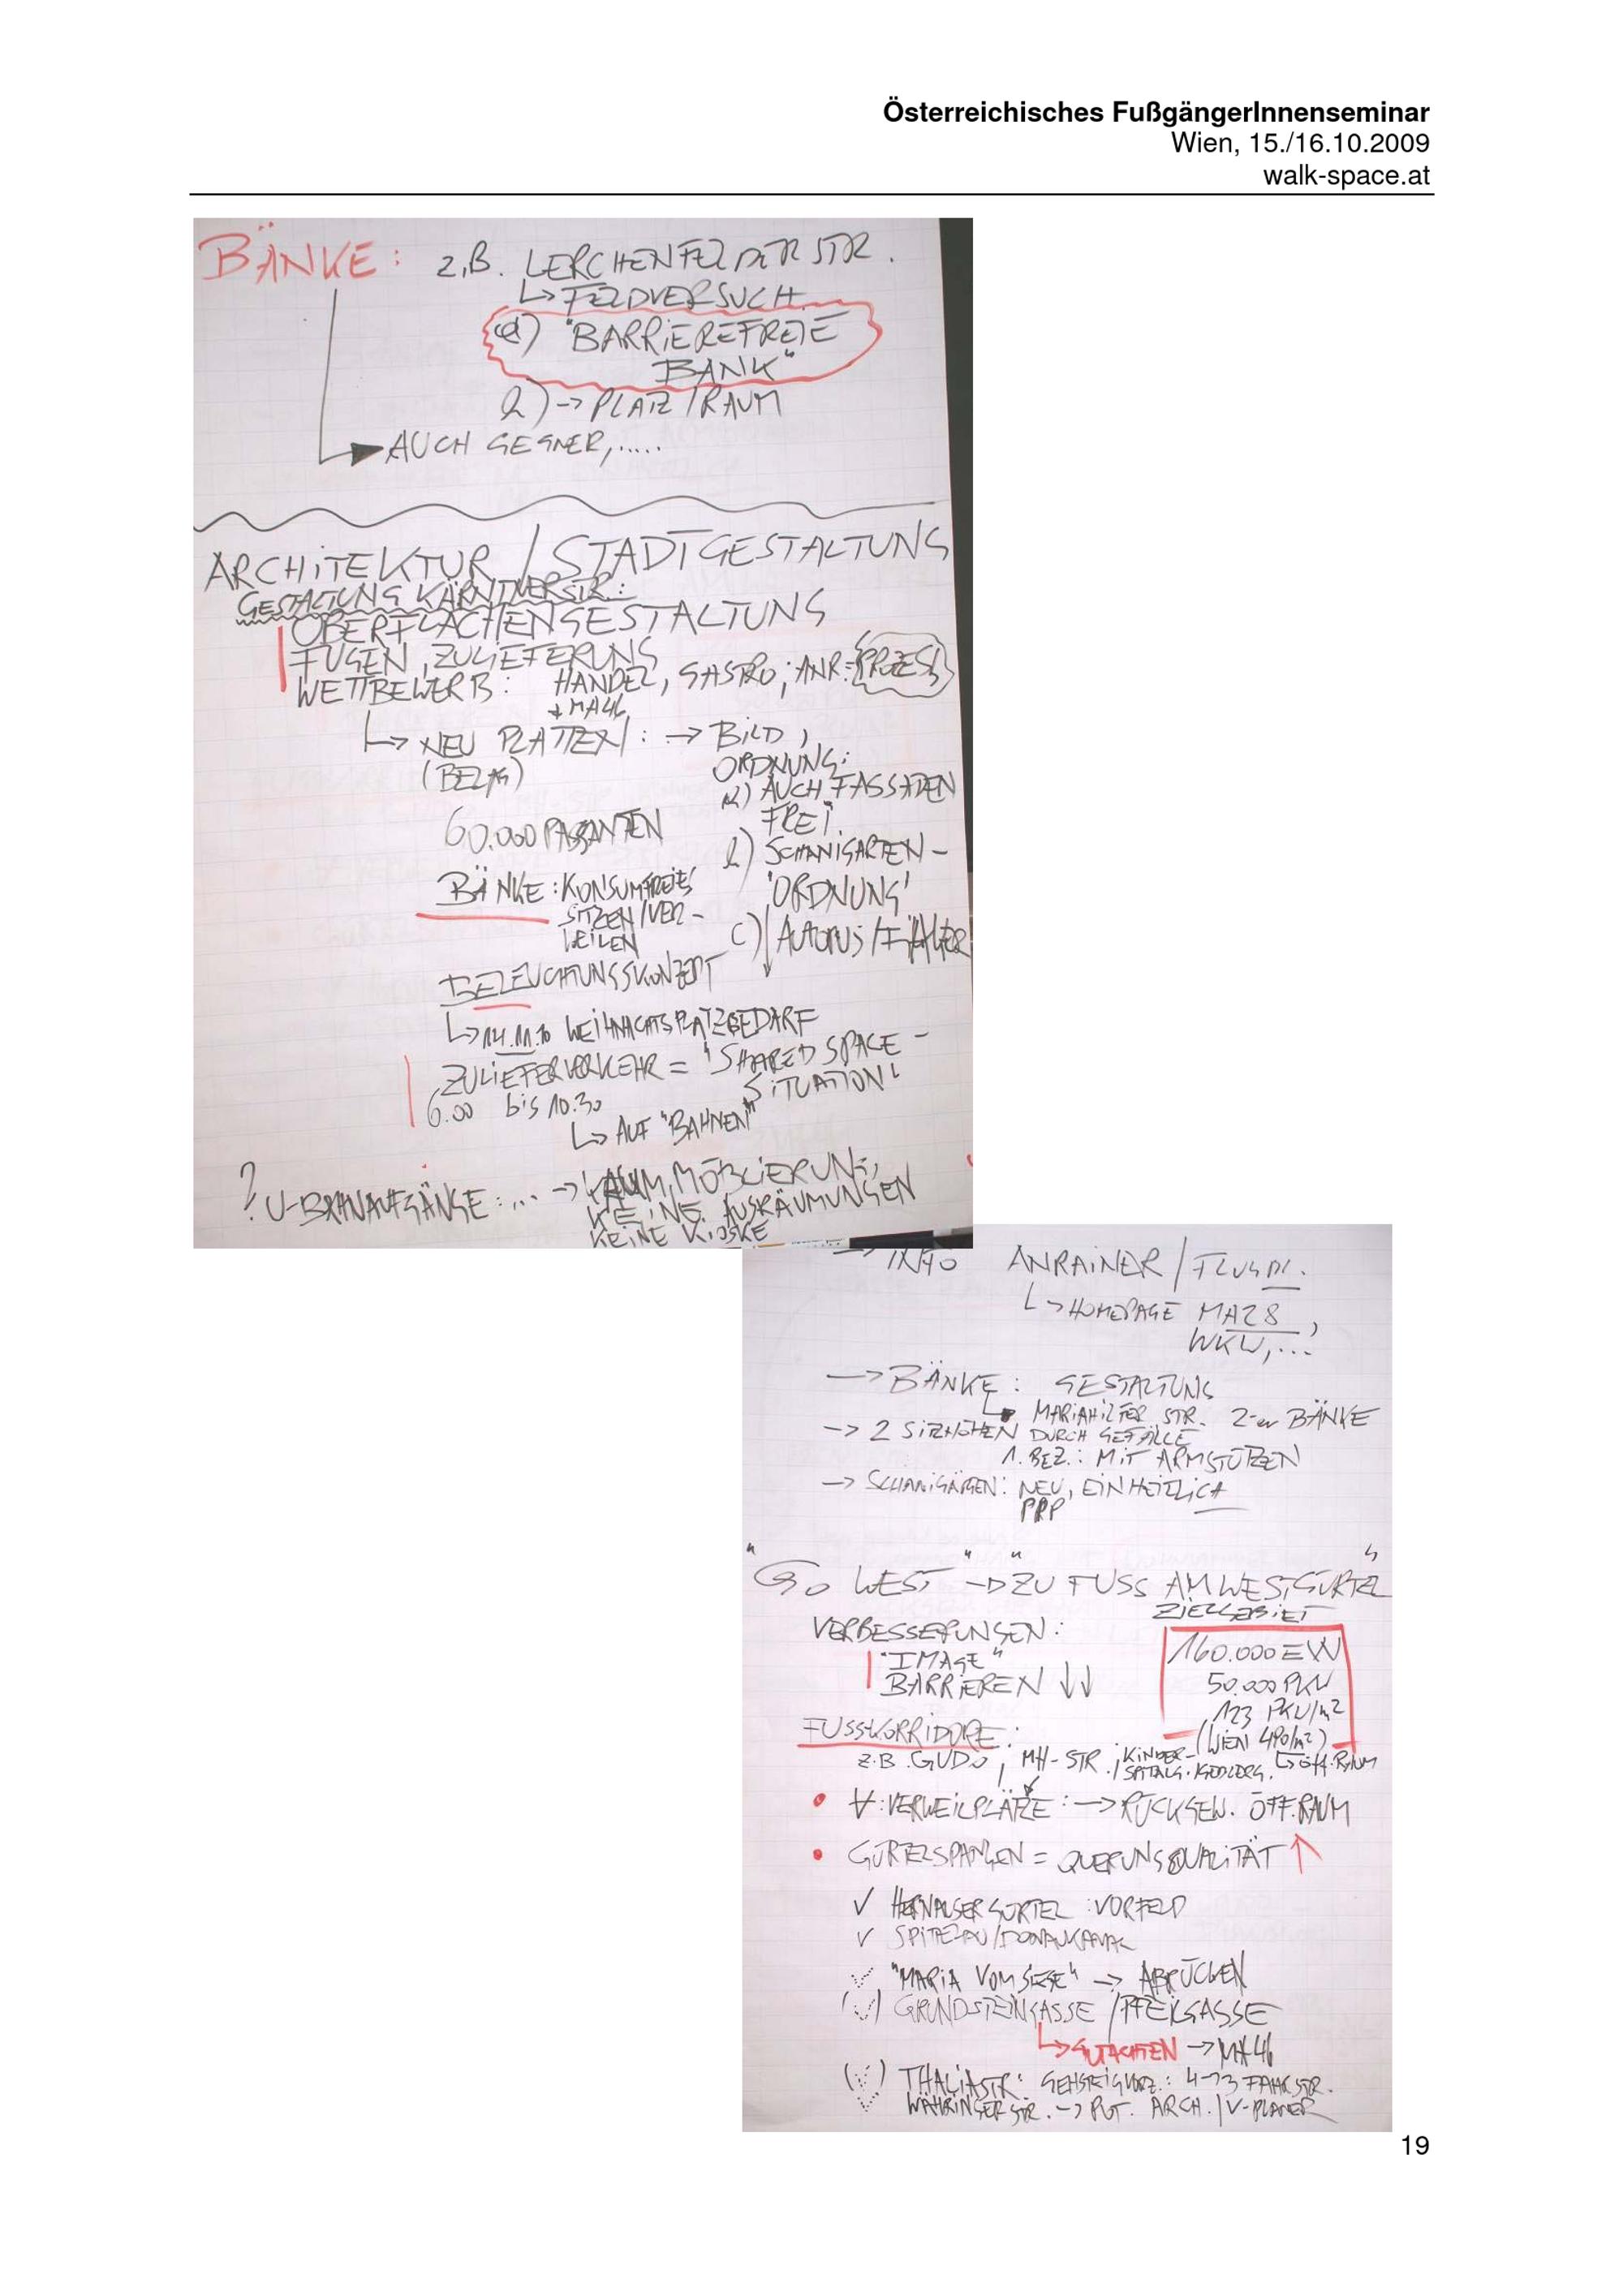 Österreichisches FußgängerInnenseminar
Wien, 15./16.10.2009
walk-space.at
BÄNKE: z.B. LERCHENFELDER STR.
↳ FELDVERSUCH
a) "BARRIEREFREIE
BANK"
b) → PLATZ / RAUM
AUCH GEGNER,.....
ARCHITEKTUR / STADTGESTALTUNG
GESTALTUNG KÄRNTNERSTR.:
OBERFLÄCHENGESTALTUNG
FUGEN, ZULIEFERUNG
WETTBEWERB: HANDEL, GASTRO; ANR. PROZESS
+ MA46
↳ NEU PLATTEN: → BILD,
(BELAG) ORDNUNG:
a) AUCH FASSADEN
FREI
60.000 PASSANTEN
b) SCHANIGARTEN-
'ORDNUNG'
BÄNKE: KONSUMFREIES
SITZEN / VER-
WEILEN
c)
BELEUCHTUNGSKONZEPT
↳ 14.11. WEIHNACHTSPLATZBEDARF
ZULIEFERVERKEHR = "SHARED SPACE -
SITUATION"
6.00 bis 10.30
↳ AUF "BAHNEN"
? U-BAHNAUFGÄNGE: ... → KAUM MÖBLIERUNG,
KEINE AUSRÄUMUNGEN
KEINE KIOSKE
→ INFO ANRAINER / FLUGBL.
↳ HOMEPAGE MA28,
WKW,...
→ BÄNKE: GESTALTUNG
MARIAHILFER STR. 2-er BÄNKE
→ 2 SITZHÖHEN DURCH GEFÄLLE
1. BEZ.: MIT ARMSTÜTZEN
→ SCHANIGÄRTEN: NEU, EINHEITLICH
PPP
"GO WEST" → "ZU FUSS AM WESTGÜRTEL"
ZIELGEBIET
VERBESSERUNGEN:
160.000 EW
"IMAGE"
50.000 PKW
BARRIEREN ↓↓
123 PKW/m²
FUSSKORRIDORE:
(WIEN 490/m²)
z.B. GUDO, MH-STR., KINDER-
SPITALG. ↳ öff. RAUM
• ∀: VERWEILPLÄTZE: → RÜCKGEW. ÖFF. RAUM
• GÜRTELSPANGEN = QUERUNGSQUALITÄT ↑
✓ HERNALSER GÜRTEL: VORFELD
✓ SPITTELAU / DONAUKANAL
"MARIA VOM SIEGE" → ABRÜCKEN
(✓) GRUNDSTEINGASSE / PFEILGASSE
↳ GUTACHTEN → MA46
(✓) THALIASTR: GEHSTEIGVORZ.: 4→3 FAHRSTR.
WÄHRINGERSTR. → ARCH. / V-PLANER
19